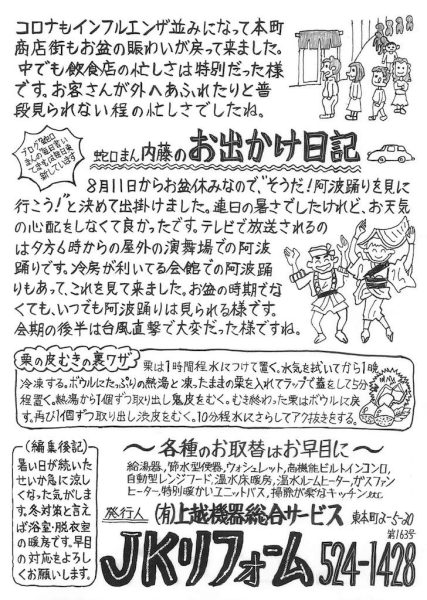 コロナもインフルエンザ並みになって本町
商店街もお盆の賑わいが戻って来ました。
中でも飲食店の忙しさは特別だった様
です。お客さんが外へあふれたりと普
段見られない程の忙しさでしたね。
ブログ"蛇口
まんの毎日書い
てます"は毎日更
新しています
蛇口まん内藤のお出かけ日記
8月11日からお盆休みなので、"そうだ!阿波踊りを見に
行こう!"と決めて出掛けました。連日の暑さでしたけれど、お天気
の心配をしなくて良かったです。テレビで放送されるの
は夕方6時からの屋外の演舞場での阿波
踊りです。冷房が利いてる会館での阿波踊
りもあって、これを見て来ました。お盆の時期でな
くても、いつでも阿波踊りは見られる様です。
会期の後半は台風直撃で大変だった様ですね。
栗の皮むきの裏ワザ
栗は1時間程水につけて置く。水気を拭いてから1晩
冷凍する。ボウルにたっぷりの熱湯と凍ったままの栗を入れてラップで蓋をして5分
程置く。熱湯から1個ずつ取り出し鬼皮をむく。むき終わった栗はボウルに戻
す。再び1個ずつ取り出し渋皮をむく。10分程水にさらしてアク抜きをする。
(編集後記)
暑い日が続いた
せいか急に涼し
くなった気がしま
す。冬対策と言え
ば浴室・脱衣室
の暖房です。早目
の対応をよろし
くお願いします。
～各種のお取替はお早目に～
給湯器,節水型便器,ウォシュレット,高機能ビルトインコンロ,
自動型レンジフード,温水床暖房,温水ルームヒーター,ガスファン
ヒーター,特別暖かいユニットバス,掃除が楽なキッチンetc
発行人 (有)上越機器総合サービス 東本町2-5-20
第163号
JKリフォーム 524-1428